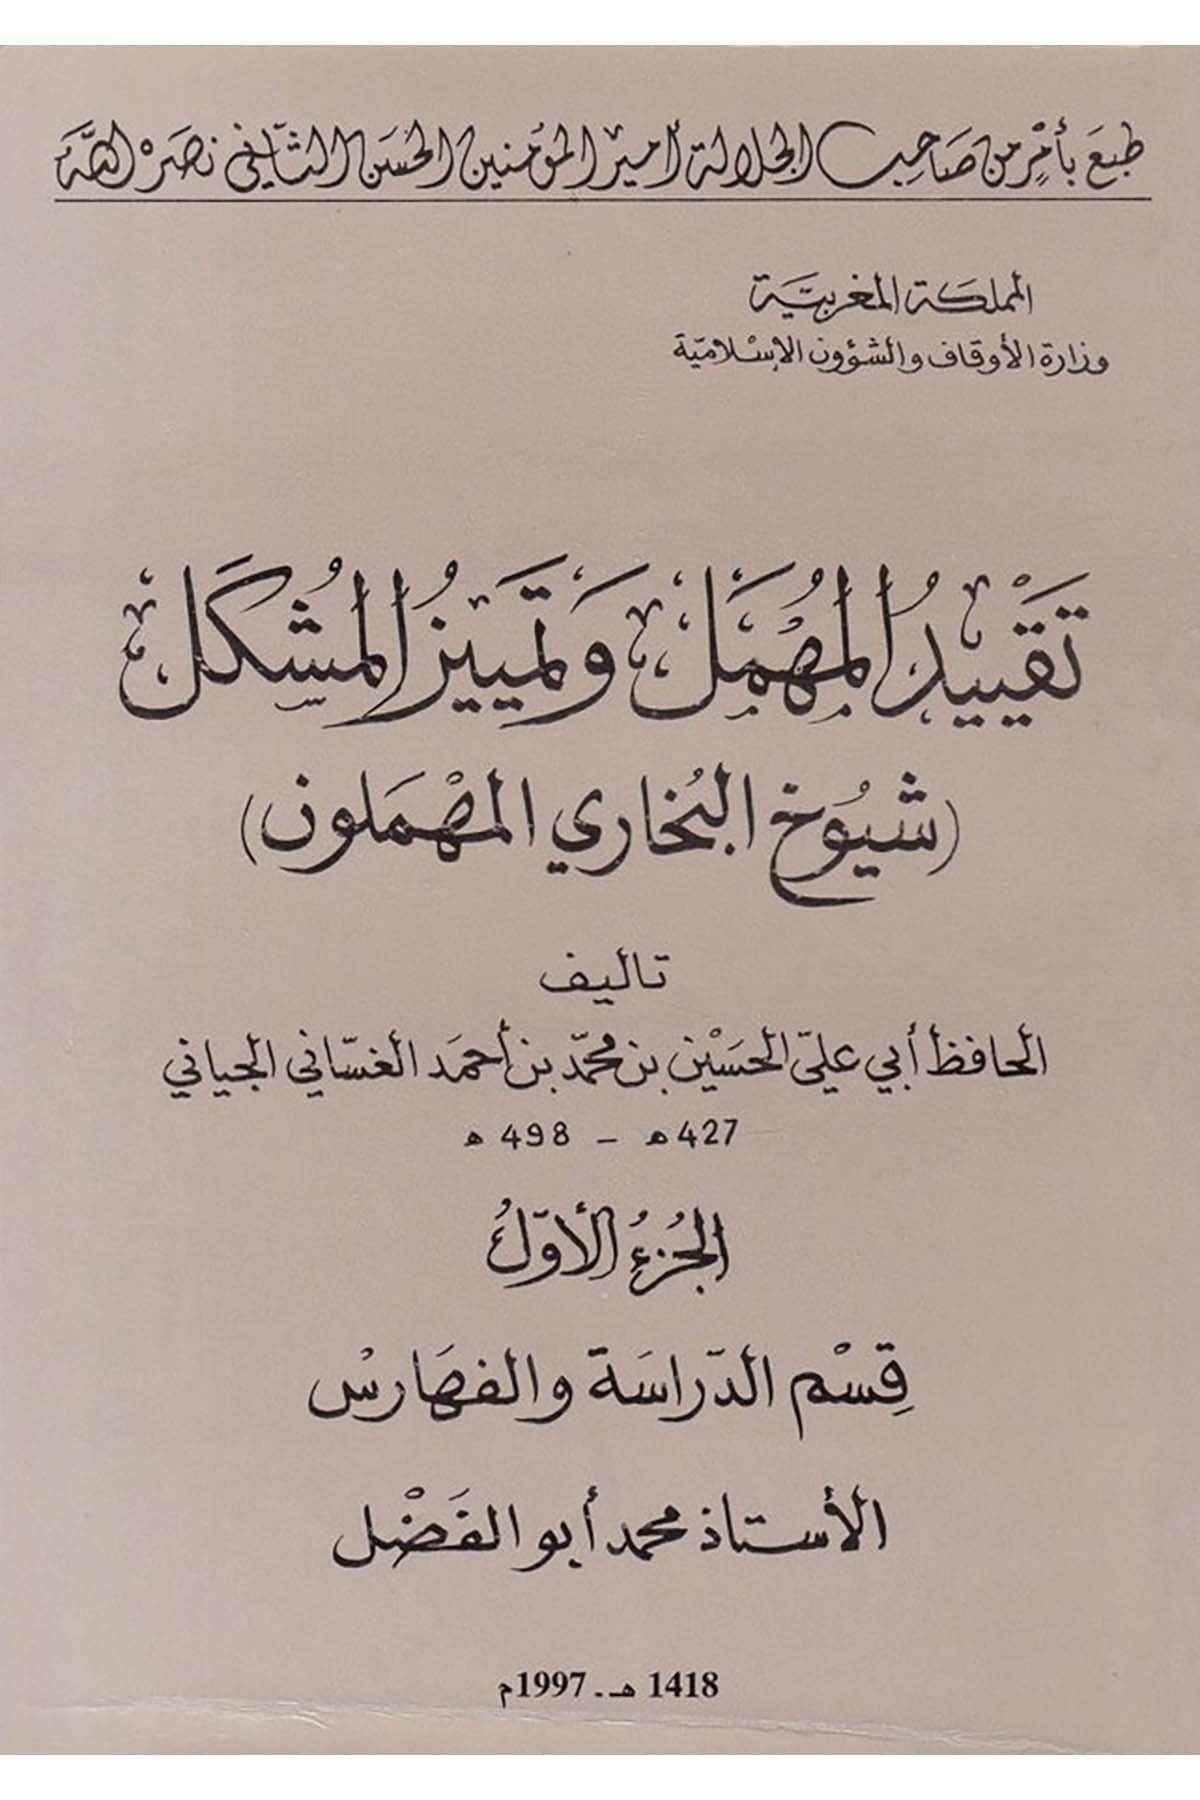 طبع بأمر من صاحب الجلالة أمير المؤمنين الحسن الثاني نصره الله
المملكة المغربية
وزارة الأوقاف والشؤون الإسلامية
تقييد المهمل وتمييز المشكل
(شيوخ البخاري المهملون)
تأليف
الحافظ أبي علي الحسين بن محمد بن أحمد الغساني الجياني
427هـ - 498 هـ
الجزء الأول
قسم الدراسة والفهارس
الأستاذ محمد أبو الفضل
1418 هـ - 1997م